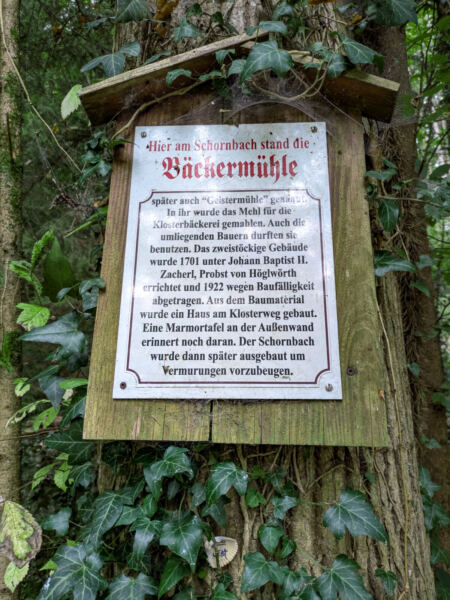 Hier am Schornbach stand die
Bäckermühle
später auch "Geistermühle" genannt.
In ihr wurde das Mehl für die
Klosterbäckerei gemahlen. Auch die
umliegenden Bauern durften sie
benutzen. Das zweistöckige Gebäude
wurde 1701 unter Johann Baptist II.
Zacherl, Probst von Höglwörth
errichtet und 1922 wegen Baufälligkeit
abgetragen. Aus dem Baumaterial
wurde ein Haus am Klosterweg gebaut.
Eine Marmortafel an der Außenwand
erinnert noch daran. Der Schornbach
wurde dann später ausgebaut um
Vermurungen vorzubeugen.